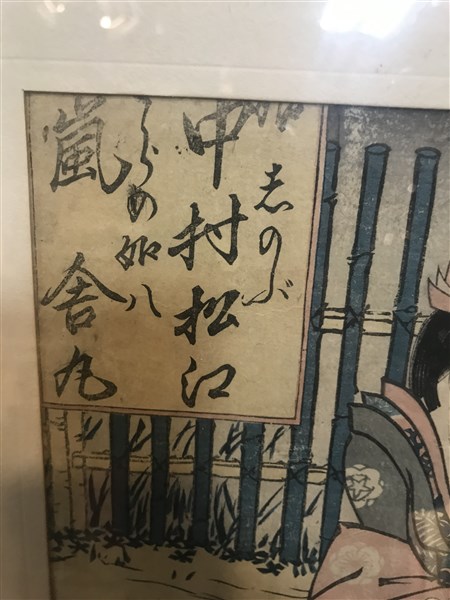 志のぶ
中村松江
らめ如八
嵐舎丸